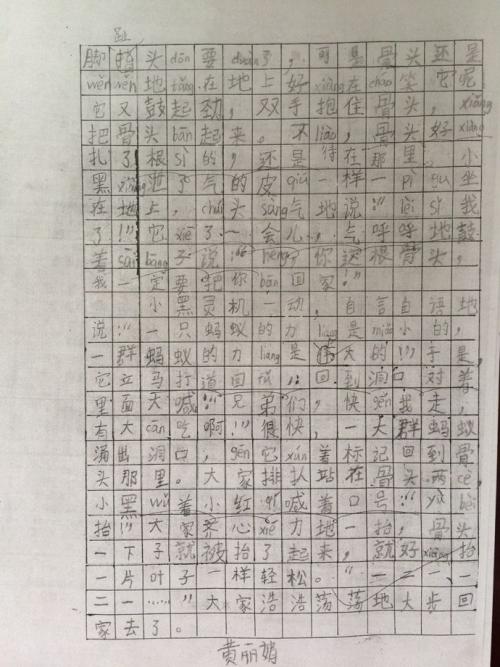 趾
脚指头dōu要duàn了，可是骨头还是
wěnwěn地tǎng在地上好xiàng在cháo笑它呢
它又鼓起劲，双手抱住骨头，xiǎng
把骨头bān起来。不liào，骨头好xiàng
扎了根sì的，还是待在那里。小
黑xiàng泄了气的皮qiú一样一pì gu坐
在地上，chuí头sàng气地说：“lèi sǐ我
了！”它xiē了一会儿，气呼呼地鼓
着sāi bāng子说：“hēng！你这根骨头，
我一定要把你bān回家！”
小黑灵机一动，自言自语地
说：“一只蚂蚁的力liàng是miǎo小的，
一群蚂蚁的力liang是伟大的！”于是，
它立马打道回府，回到洞口对着
里面大喊：“兄弟们，快gēn我走，
有大cān吃啊！”很快，一大群蚂蚁
涌出洞口，gēn它xún着标记回到骨
头那里。大家排队站在骨头两cè
小黑wǔ着小红qí喊着口号：“yù bèi
抬！”大家齐心xié力地一抬，骨头
一下子就被抬了起来，就好xiàng抬
一片叶子一样轻松。“一二一一
二一……”大家浩浩荡荡地大步回
家去了。
黄丽娟